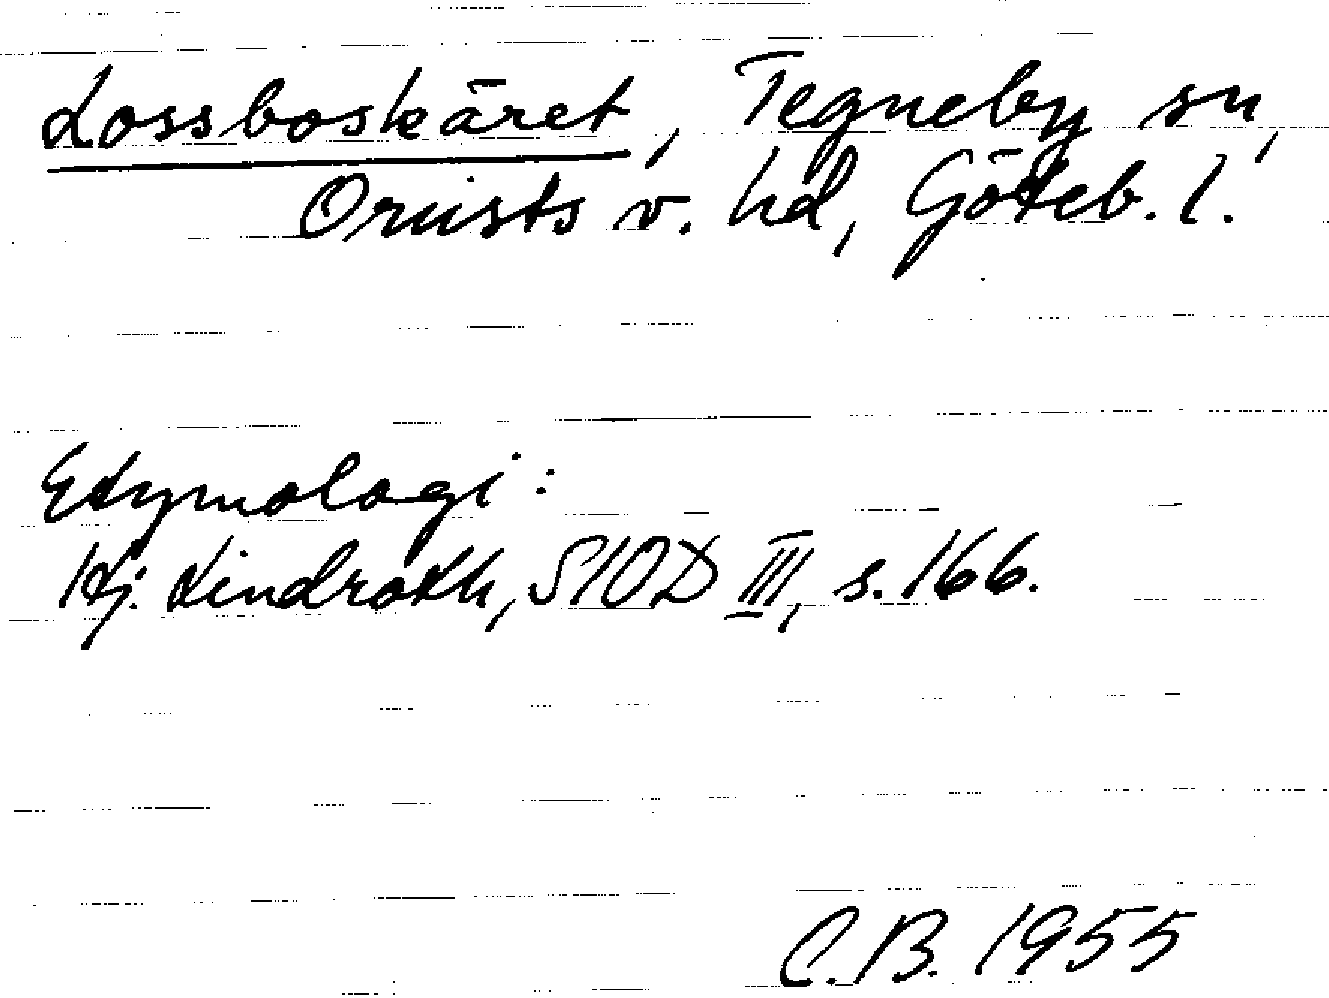 Lossboskäret, Tegneby sn,
Orusts v. hd, Göteb. l.
Etymologi:
Hj. Lindroth, SIOD III, s. 166.
C.B. 1955